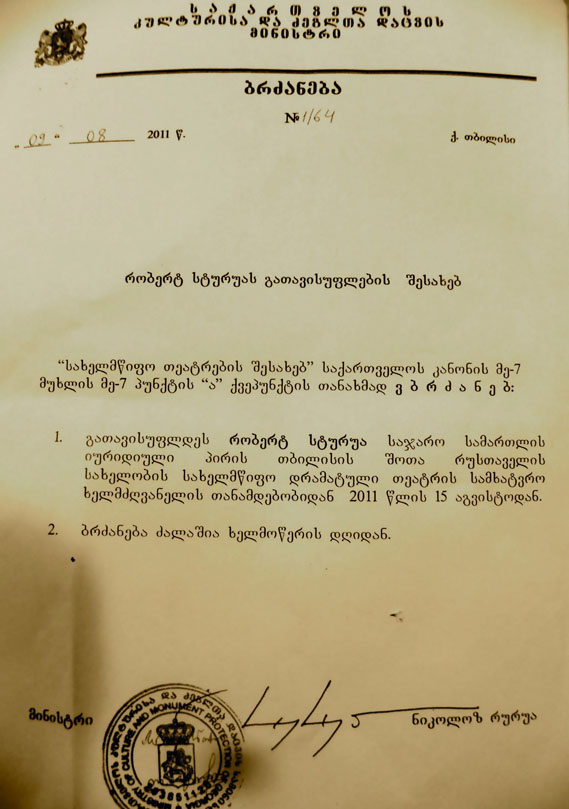 ს ა ქ ა რ თ ვ ე ლ ო ს
კულტურისა და ძეგლთა დაცვის
მინისტრი
ბრძანება
№ 1/64
„ 09 “ 08 2011 წ.
ქ. თბილისი
რობერტ სტურუას გათავისუფლების შესახებ
“სახელმწიფო თეატრების შესახებ” საქართველოს კანონის მე-7
მუხლის მე-7 პუნქტის “ა” ქვეპუნქტის თანახმად ვ ბ რ ძ ა ნ ე ბ:
1. გათავისუფლდეს რობერტ სტურუა საჯარო სამართლის
იურიდიული პირის თბილისის შოთა რუსთაველის
სახელობის სახელმწიფო დრამატული თეატრის სამხატვრო
ხელმძღვანელის თანამდებობიდან 2011 წლის 15 აგვისტოდან.
2. ბრძანება ძალაშია ხელმოწერის დღიდან.
მინისტრი
ნიკოლოზ რურუა
კულტურისა და ძეგლთა დაცვის
OF CULTURE AND MONUMENT PROTECTION